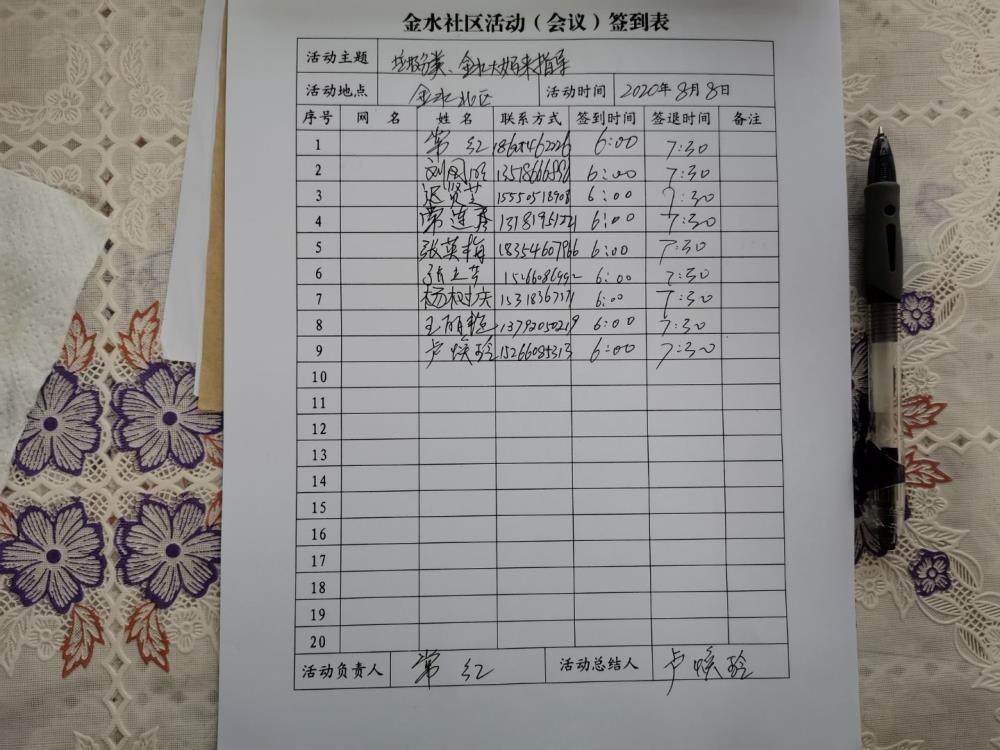 金水社区活动（会议）签到表
活动主题 垃圾分类、金水大妈来指导
活动地点 金水北区 活动时间 2020年8月8日
序号 网 名 姓 名 联系方式 签到时间 签退时间 备注
1 常红 6:00 7:30
2 刘国明 6:00 7:30
3 迟贤芝 6:00 7:30
4 常连春 6:00 7:30
5 张英梅 18354607966 6:00 7:30
6 6:00 7:30
7 杨树庆 6:00 7:30
8 王丽 13792050219 6:00 7:30
9 卢焕玲 15266085313 6:00 7:30
10
11
12
13
14
15
16
17
18
19
20
活动负责人 常红 活动总结人 卢焕玲